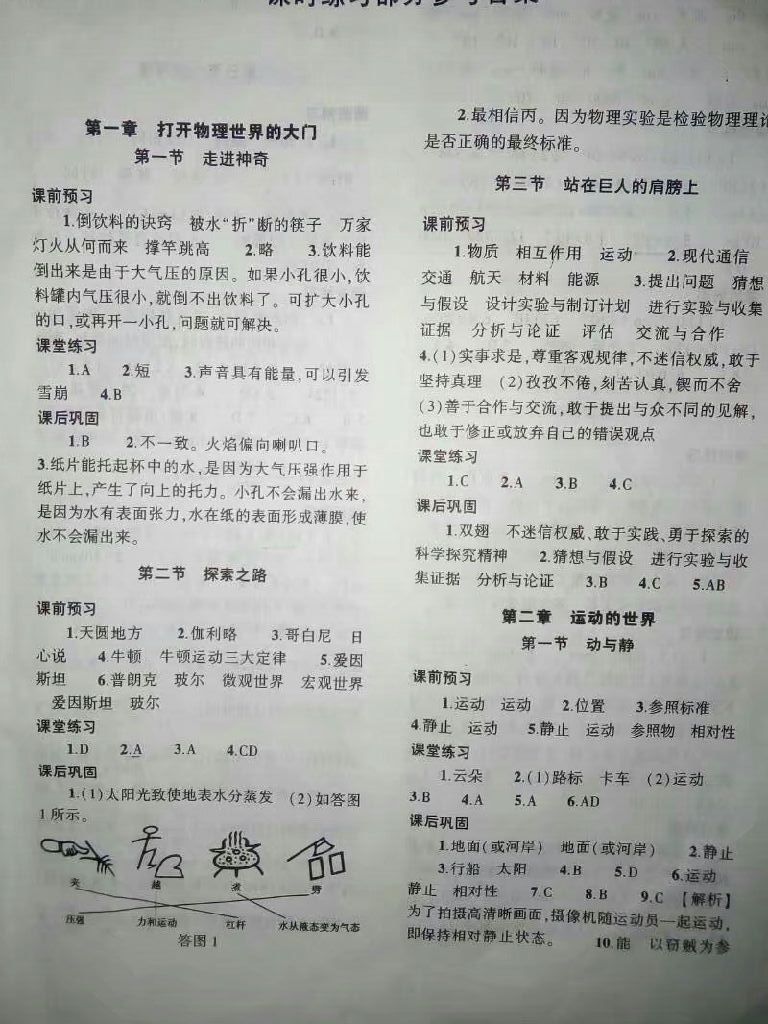 课时练习部分参考答案
第一章 打开物理世界的大门
第一节 走进神奇
课前预习
1.倒饮料的诀窍 被水“折”断的筷子 万家
灯火从何而来 撑竿跳高 2.略 3.饮料能
倒出来是由于大气压的原因。如果小孔很小,饮
料罐内气压很小,就倒不出饮料了。可扩大小孔
的口,或再开一小孔,问题就可解决。
课堂练习
1.A 2.短 3.声音具有能量,可以引发
雪崩 4.B
课后巩固
1.B 2.不一致。火焰偏向喇叭口。
3.纸片能托起杯中的水,是因为大气压强作用于
纸片上,产生了向上的托力。小孔不会漏出水来,
是因为水有表面张力,水在纸的表面形成薄膜,使
水不会漏出来。
第二节 探索之路
课前预习
1.天圆地方 2.伽利略 3.哥白尼 日
心说 4.牛顿 牛顿运动三大定律 5.爱因
斯坦 6.普朗克 玻尔 微观世界 宏观世界
爱因斯坦 玻尔
课堂练习
1.D 2.A 3.A 4.CD
课后巩固
1.(1)太阳光致使地表水分蒸发 (2)如答图
1所示。
夹 越 煮 劈
压强 力和运动 杠杆 水从液态变为气态
答图1
2.最相信丙。因为物理实验是检验物理理论
是否正确的最终标准。
第三节 站在巨人的肩膀上
课前预习
1.物质 相互作用 运动 2.现代通信
交通 航天 材料 能源 3.提出问题 猜想
与假设 设计实验与制订计划 进行实验与收集
证据 分析与论证 评估 交流与合作
4.(1)实事求是,尊重客观规律,不迷信权威,敢于
坚持真理 (2)孜孜不倦,刻苦认真,锲而不舍
(3)善于合作与交流,敢于提出与众不同的见解,
也敢于修正或放弃自己的错误观点
课堂练习
1.C 2.A 3.B 4.C
课后巩固
1.双翅 不迷信权威、敢于实践、勇于探索的
科学探究精神 2.猜想与假设 进行实验与收
集证据 分析与论证 3.B 4.C 5.AB
第二章 运动的世界
第一节 动与静
课前预习
1.运动 运动 2.位置 3.参照标准
4.静止 运动 5.静止 运动 参照物 相对性
课堂练习
1.云朵 2.(1)路标 卡车 (2)运动
3.B 4.A 5.A 6.AD
课后巩固
1.地面(或河岸) 地面(或河岸) 2.静止
3.行船 太阳 4.B 5.D 6.运动
静止 相对性 7.C 8.B 9.C 【解析】
为了拍摄高清晰画面,摄像机随运动员一起运动,
即保持相对静止状态。 10.能 以窃贼为参